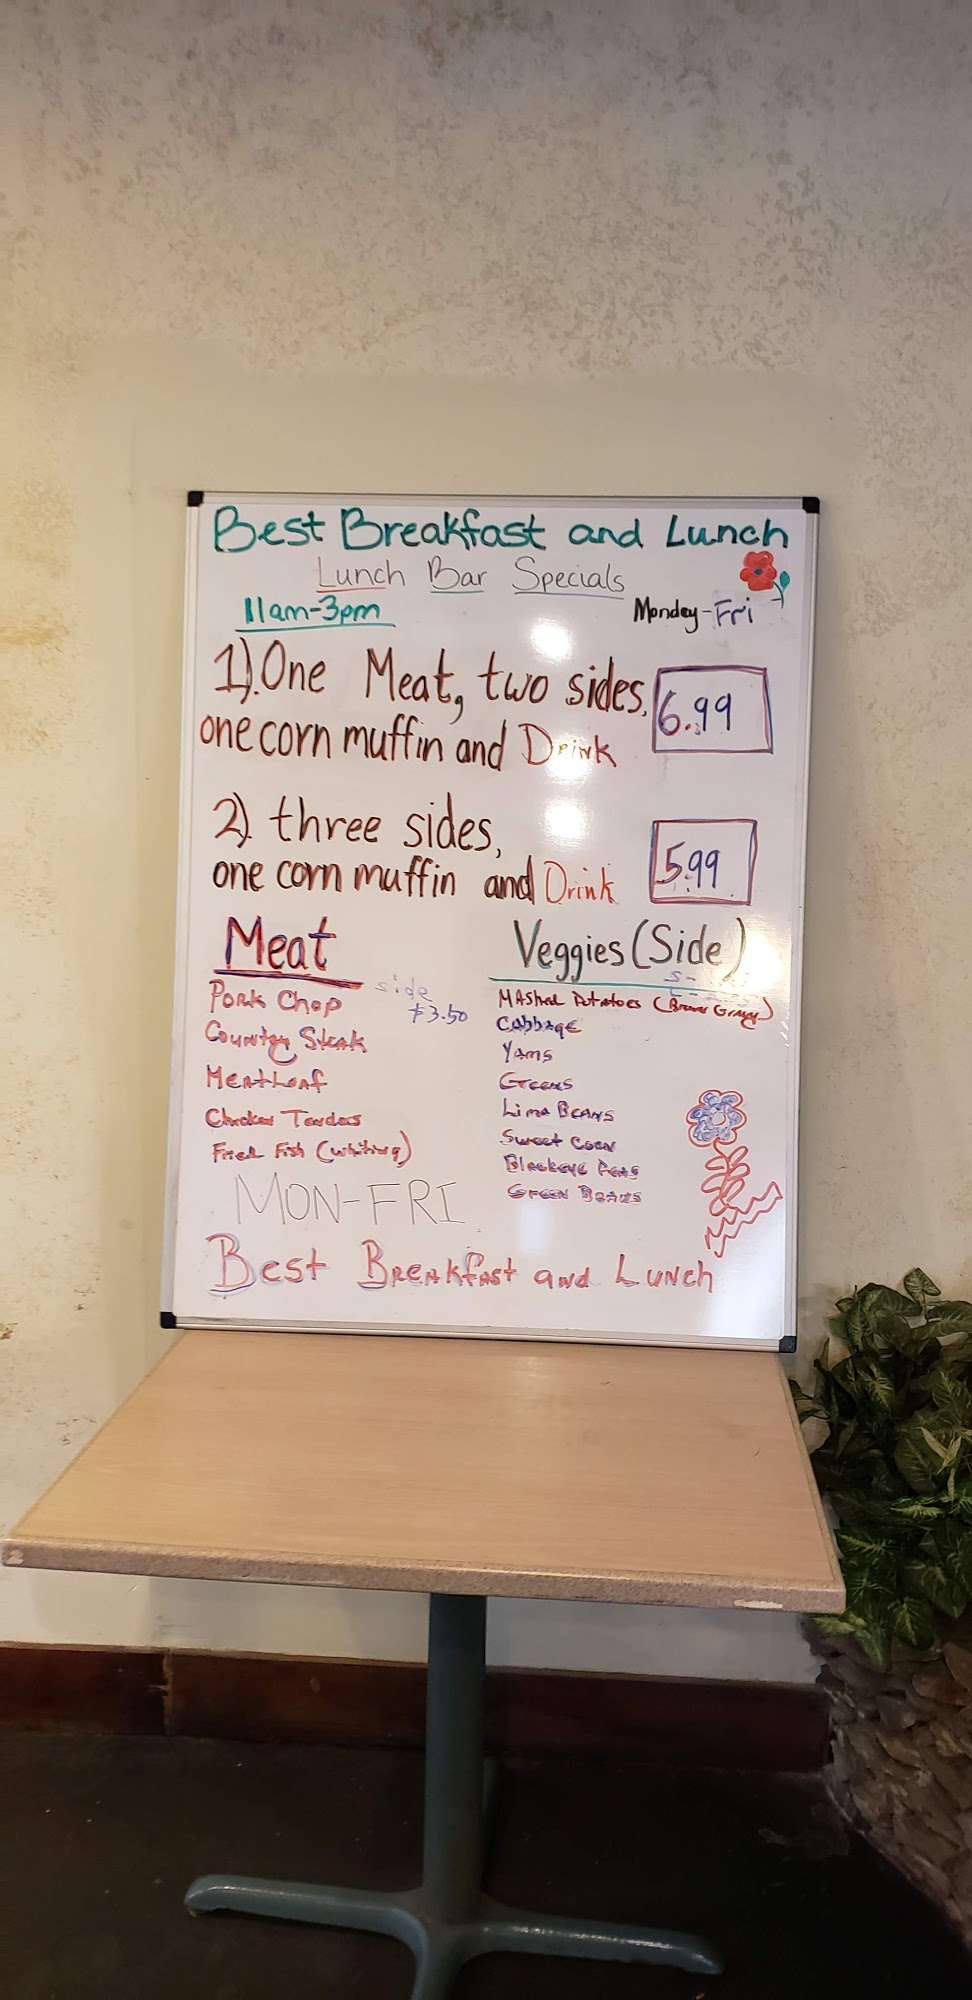 Best Breakfast and Lunch
Lunch Bar Specials
11am-3pm
Monday-Fri
1). One Meat, two sides,
one corn muffin and Drink
6.99
2). three sides,
one corn muffin and Drink
5.99
Meat
side
$3.50
Pork Chop
Country Steak
Meatloaf
Chicken Tenders
Fried Fish (whiting)
Veggies (Side)
MAshed Potatoes (Brown Gravy)
Cabbage
Yams
Greens
Lima BEANS
Sweet Corn
Blackeye Peas
Green Beans
MON-FRI
Best BREAKfAst and Lunch